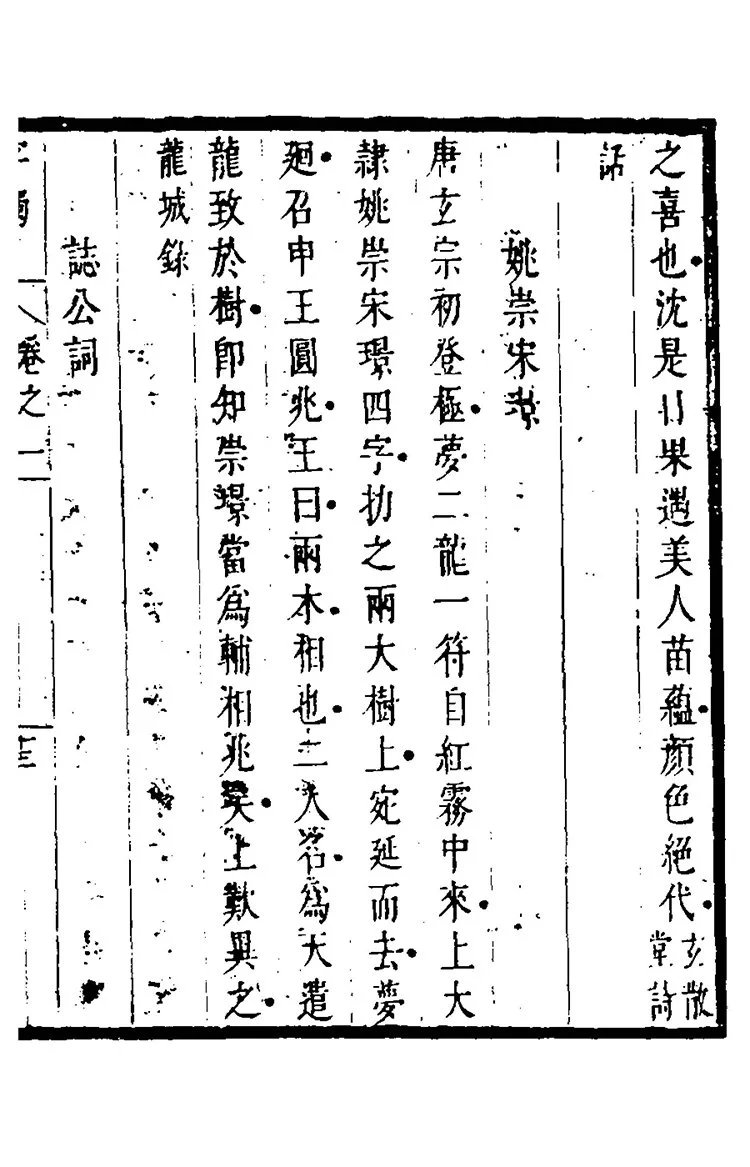 之喜也沈是日果遇美人苗蘊顏色絕代玄散堂詩
話
姚崇宋璟
唐玄宗初登極夢二龍一符自紅霧中來上大
隸姚崇宋璟四字扐之兩大樹上宛延而去夢
廻召申王圓兆王曰兩木相也二人名爲天遣
龍致於樹卽知崇璟當爲輔相兆矣上歎異之
龍城錄
誌公詞
卷之一